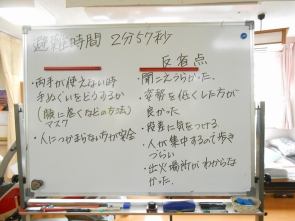 避難時間 2分57秒
・両手が使えない時
手ぬぐいをどうするか
(腕に巻くなどの方法)
マスク
・人につかまらない方が安全
反省点
・聞こえづらかった。
・姿勢を低くした方が
良かった
・段差に気をつける
・人が集中するので歩き
づらい
・出火場所がわからな
かった。